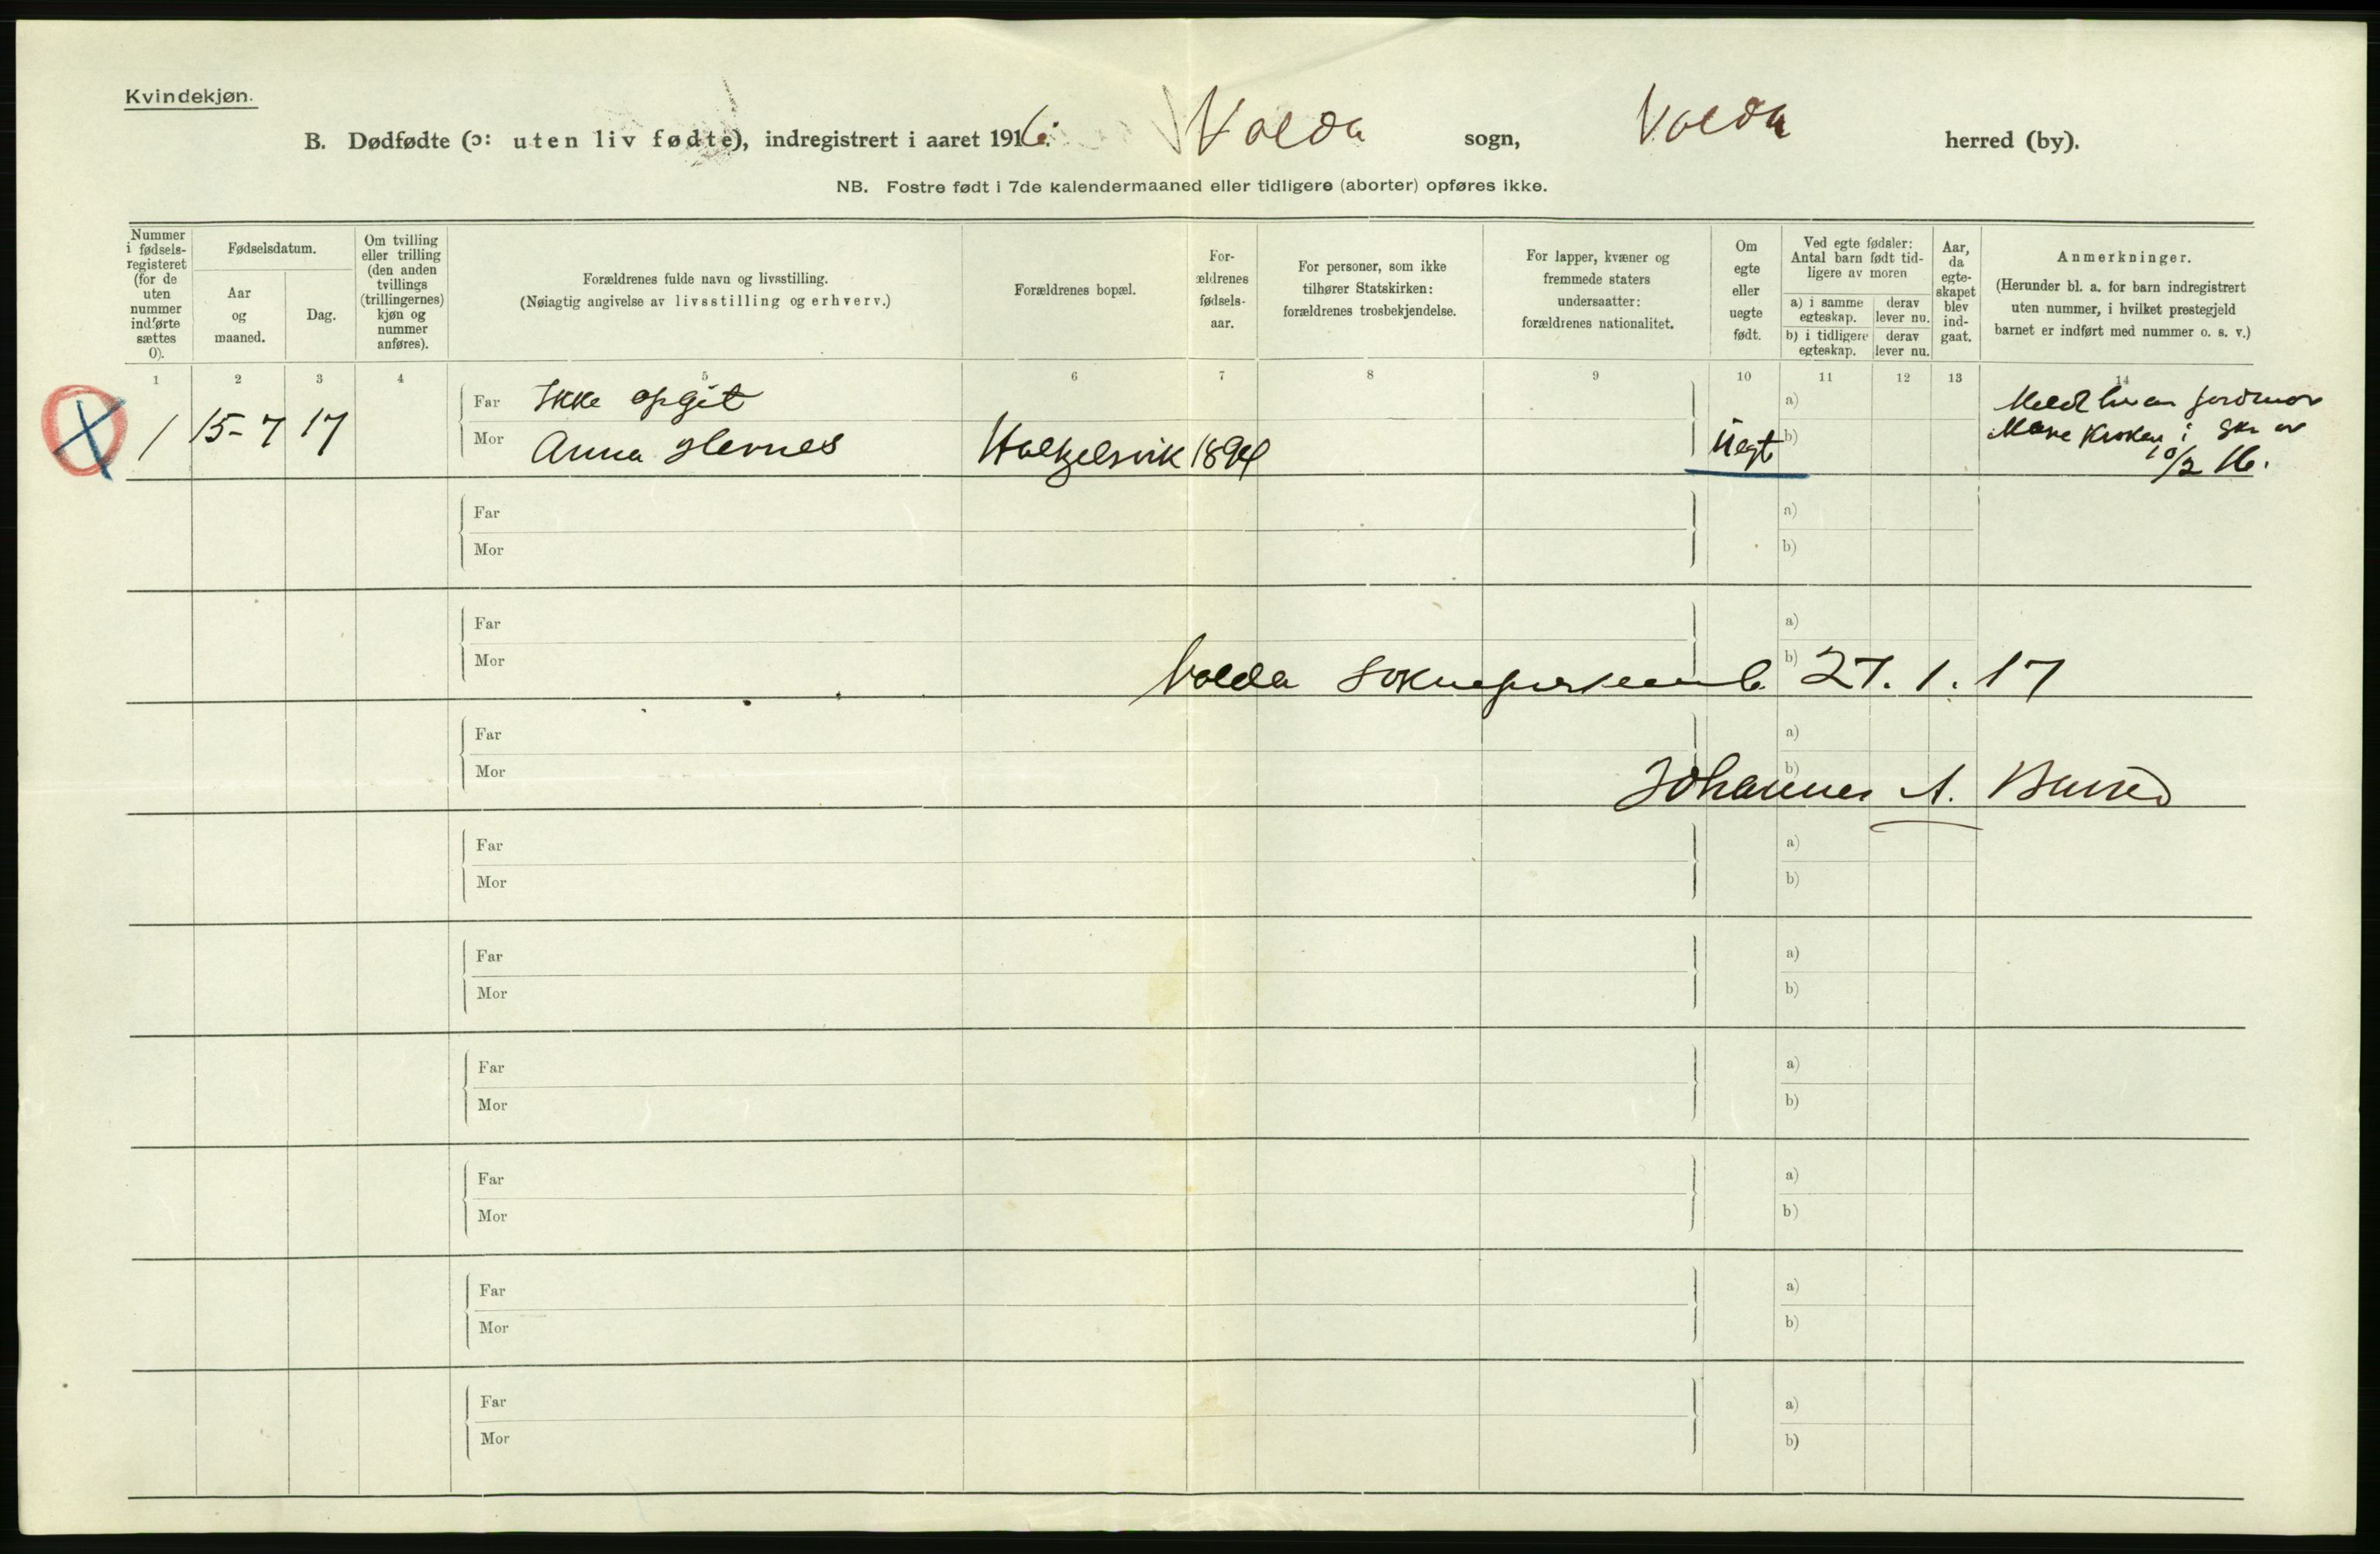 Kvindekjøn.
B. Dødfødte (ɔ: uten liv fødte), indregistrert i aaret 1916. Volda sogn, Volda herred (by).
NB. Fostre født i 7de kalendermaaned eller tidligere (aborter) opføres ikke.
Nummer i fødsels-registeret (for de uten nummer indførte sættes 0).
Fødselsdatum.
Aar og maaned.
Dag.
Om tvilling eller trilling (den anden tvillings (trillingernes) kjøn og nummer anføres).
Forældrenes fulde navn og livsstilling.
(Nøiagtig angivelse av livsstilling og erhverv.)
Forældrenes bopæl.
For-ældrenes fødsels-aar.
For personer, som ikke tilhører Statskirken: forældrenes trosbekjendelse.
For lapper, kvæner og fremmede staters undersaatter: forældrenes nationalitet.
Om egte eller uegte født.
Ved egte fødsler: Antal barn født tid-ligere av moren
a) i samme egteskap.
derav lever nu.
b) i tidligere egteskap.
derav lever nu.
Aar, da egte-skapet blev ind-gaat.
Anmerkninger.
(Herunder bl. a. for barn indregistrert uten nummer, i hvilket prestegjeld barnet er indført med nummer o. s. v.)
1 2 3 4 5 6 7 8 9 10 11 12 13 14
Far Ikke opgit a)
1 15-7 17 Mor Anna Hevnes 1894 Uegt b)
jordmor
i skr av
10/2 16.
Far a)
Mor b)
Far a)
Mor b)
Volda 27.1.17
Far a)
Mor b)
Johannes A.
Far a)
Mor b)
Far a)
Mor b)
Far a)
Mor b)
Far a)
Mor b)
Far a)
Mor b)
Far a)
Mor b)